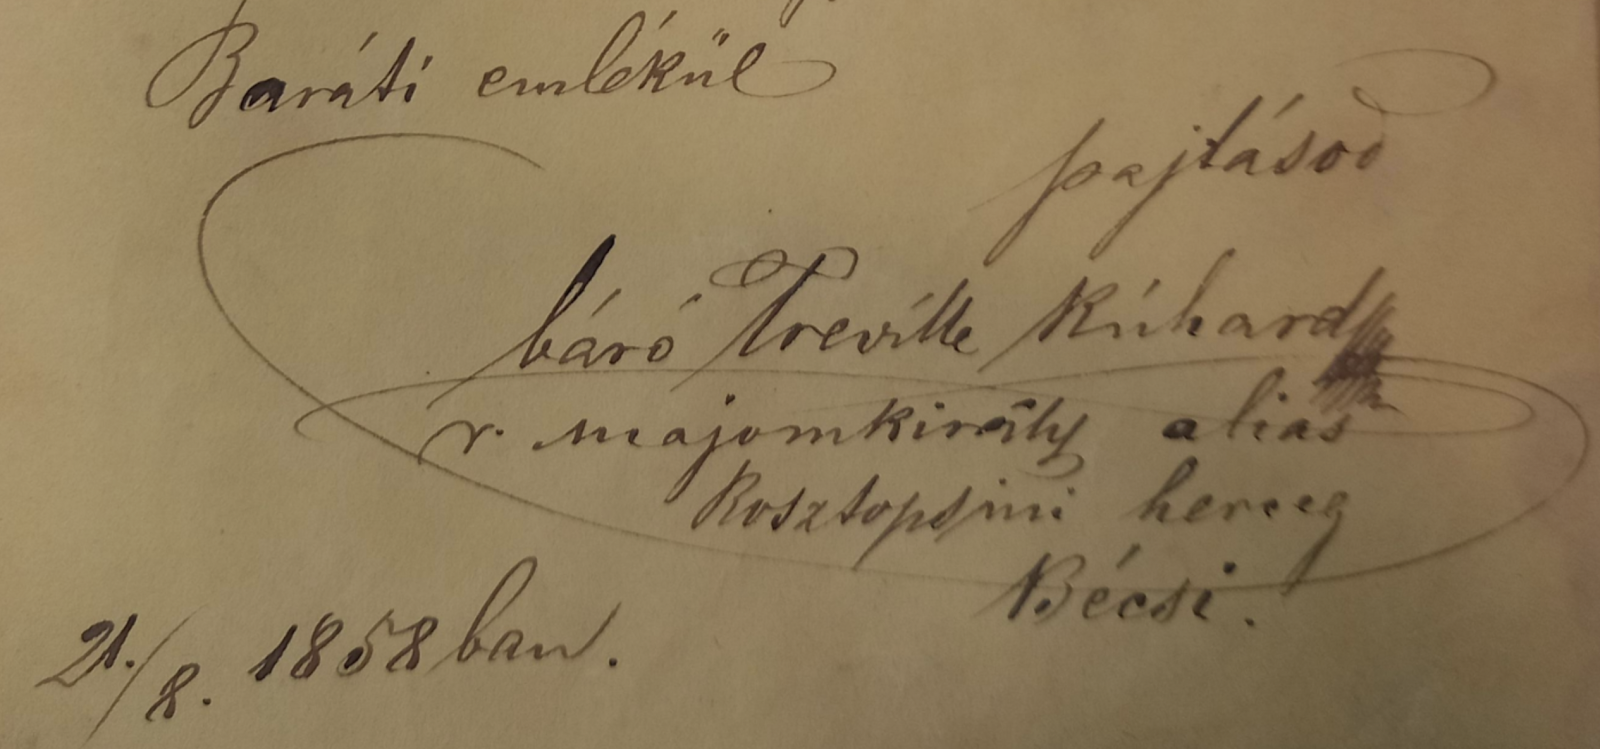 Baráti emlékül
pajtásod
báró Treville Richard
v. majomkirály alias
Rosztopsini herceg
Bécsi.
21./8. 1858 ban.